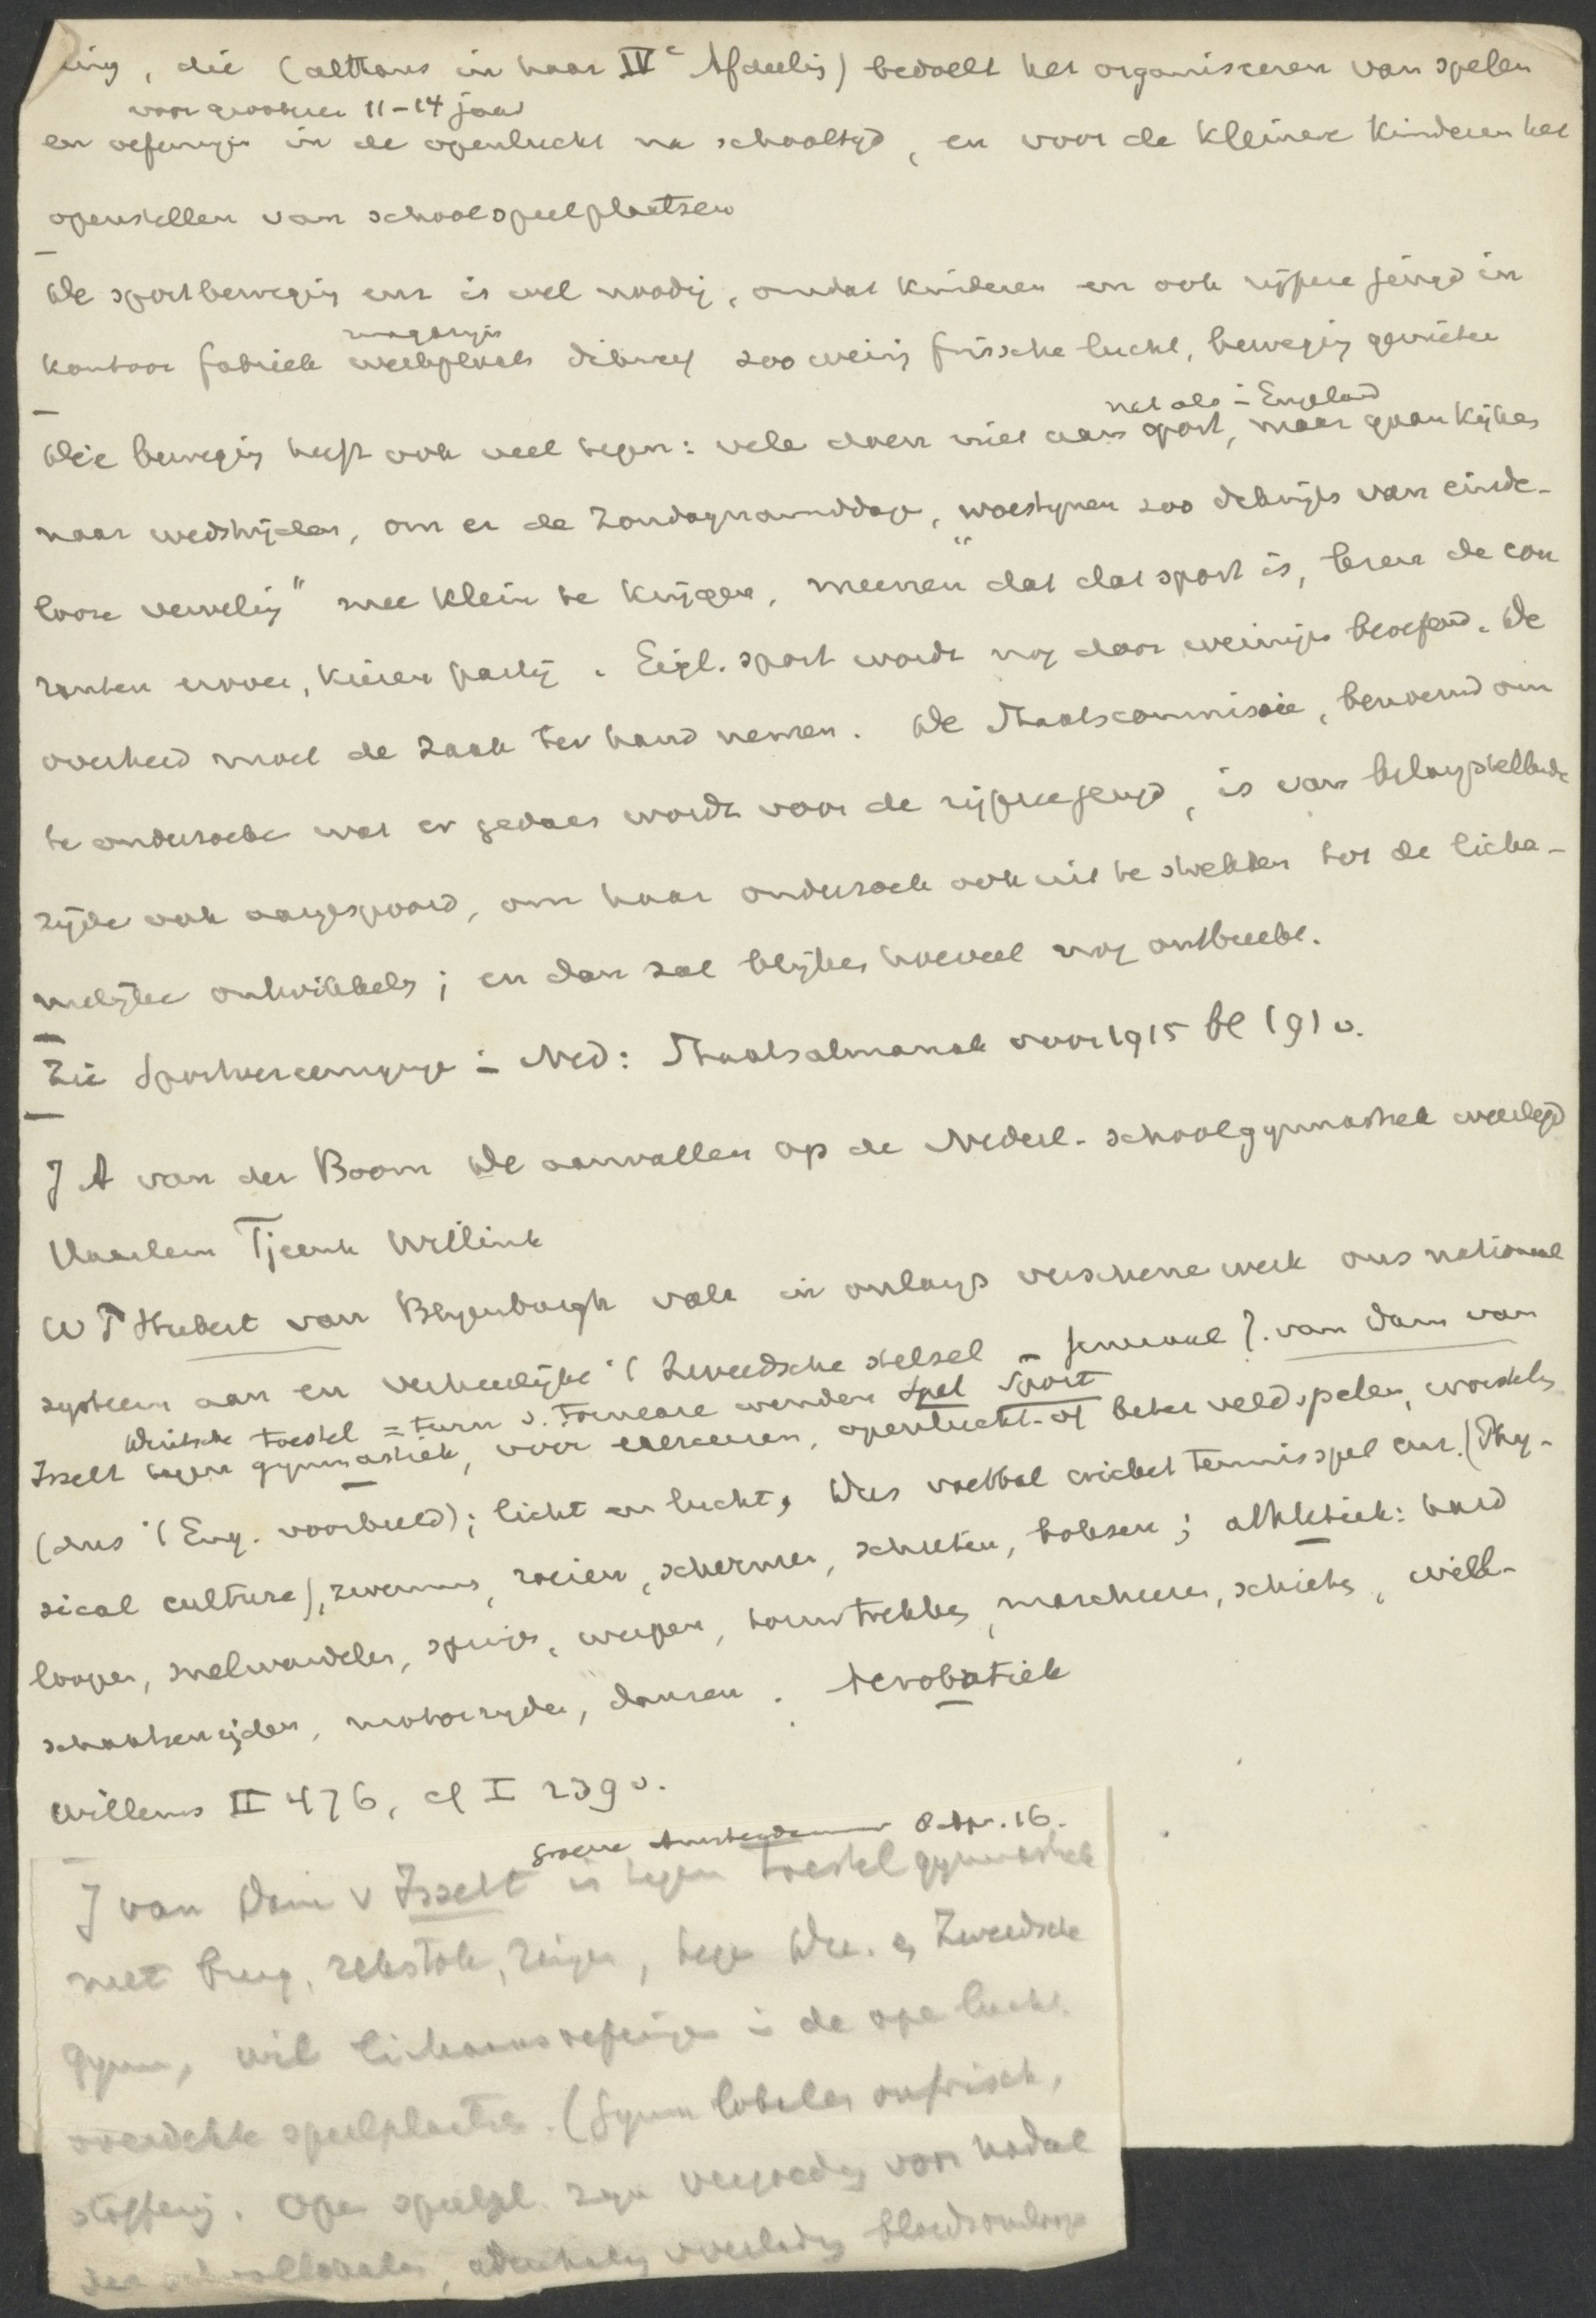 ing, die (althans in haar IVe Afdeelig) bedoelt het organiseeren van spelen
voor grootere 11-14 jaar
en oefeningen in de openlucht na schooltijd, en voor de kleinere kinderen het
openstellen van schoolspeelplaatsen
De sportbeweging enz is wel noodig, omdat kinderen en ook rijpere jeugd in
magazijn
kantoor fabriek werkplaats dikwijls zoo weinig frissche lucht, beweging genieten
net als in England
Die beweging heeft ook veel tegen: vele doen niet aan sport, maar gaan kijken
naar wedstrijden, om er de Zondagnamiddage, "woestijnen zoo dikwijls van einde-
looze verveling" mee klein te krijgen, meenen dat dat sport is, lezen de cou
ranten erover, kiezen partij. Eigl. sport wordt nog door weinigen beoefend. De
overheid moet de zaak ter hand nemen. De Staatscommissie, benoemd om
te onderzoeken wat er gedaan wordt voor de rijpere jeugd, is van belangstellende
zijde ook aangespoord, om haar onderzoek ook uit te strekken tot de licha-
melijke ontwikkeling; en dan zal blijken hoeveel nog ontbreekt.
Zie Sportvereenigingen in Ned: Staatsalmanak voor 1915 bl 191 v.
J A van der Boom De aanvallen op de Nederl. schoolgymnastiek weerlegd
Haarlem Tjeenk Willink
W P Hubert van Blijenburgh valt in onlangs verschenen werk ons nationaal
systeem aan en verheerlijkt 't Zweedsche stelsel - Generaal J. van Dam van
Duitsche toestel = turn v. Tornare wenden Spel Sport
Isselt tegen gymnastiek, voor exerceeren, openlucht- of beter veldspelen, worstelen
(dus 't Eng. voorbeeld); licht en lucht, dus voetbal cricket tennisspel enz. (Phy-
sical culture), zwemmen, roeien, schermen, schieten, boksen; athletiek: hard
loopen, snelwandelen, springen, werpen, touwtrekken, marcheeren, schieten, wiel-
schaatsenrijden, motorrijden, dansen. Acrobatiek
Willems II 476, cf I 239 v.
Groene Amsterdammer 8 Apr. 16.
J van Dam v Isselt is tegen toestelgymnastiek
met brug, rekstok, ringen, tegen Du. en Zweedsche
gymn, wil lichaamsoefeningen in de open lucht.
overdekte speelplaatsen. (Gymn lokalen onfrisch,
stoffig. Open speelpl. zijn vergoeding van nadeel
der schoollokalen, ademhaling bloedsomloop